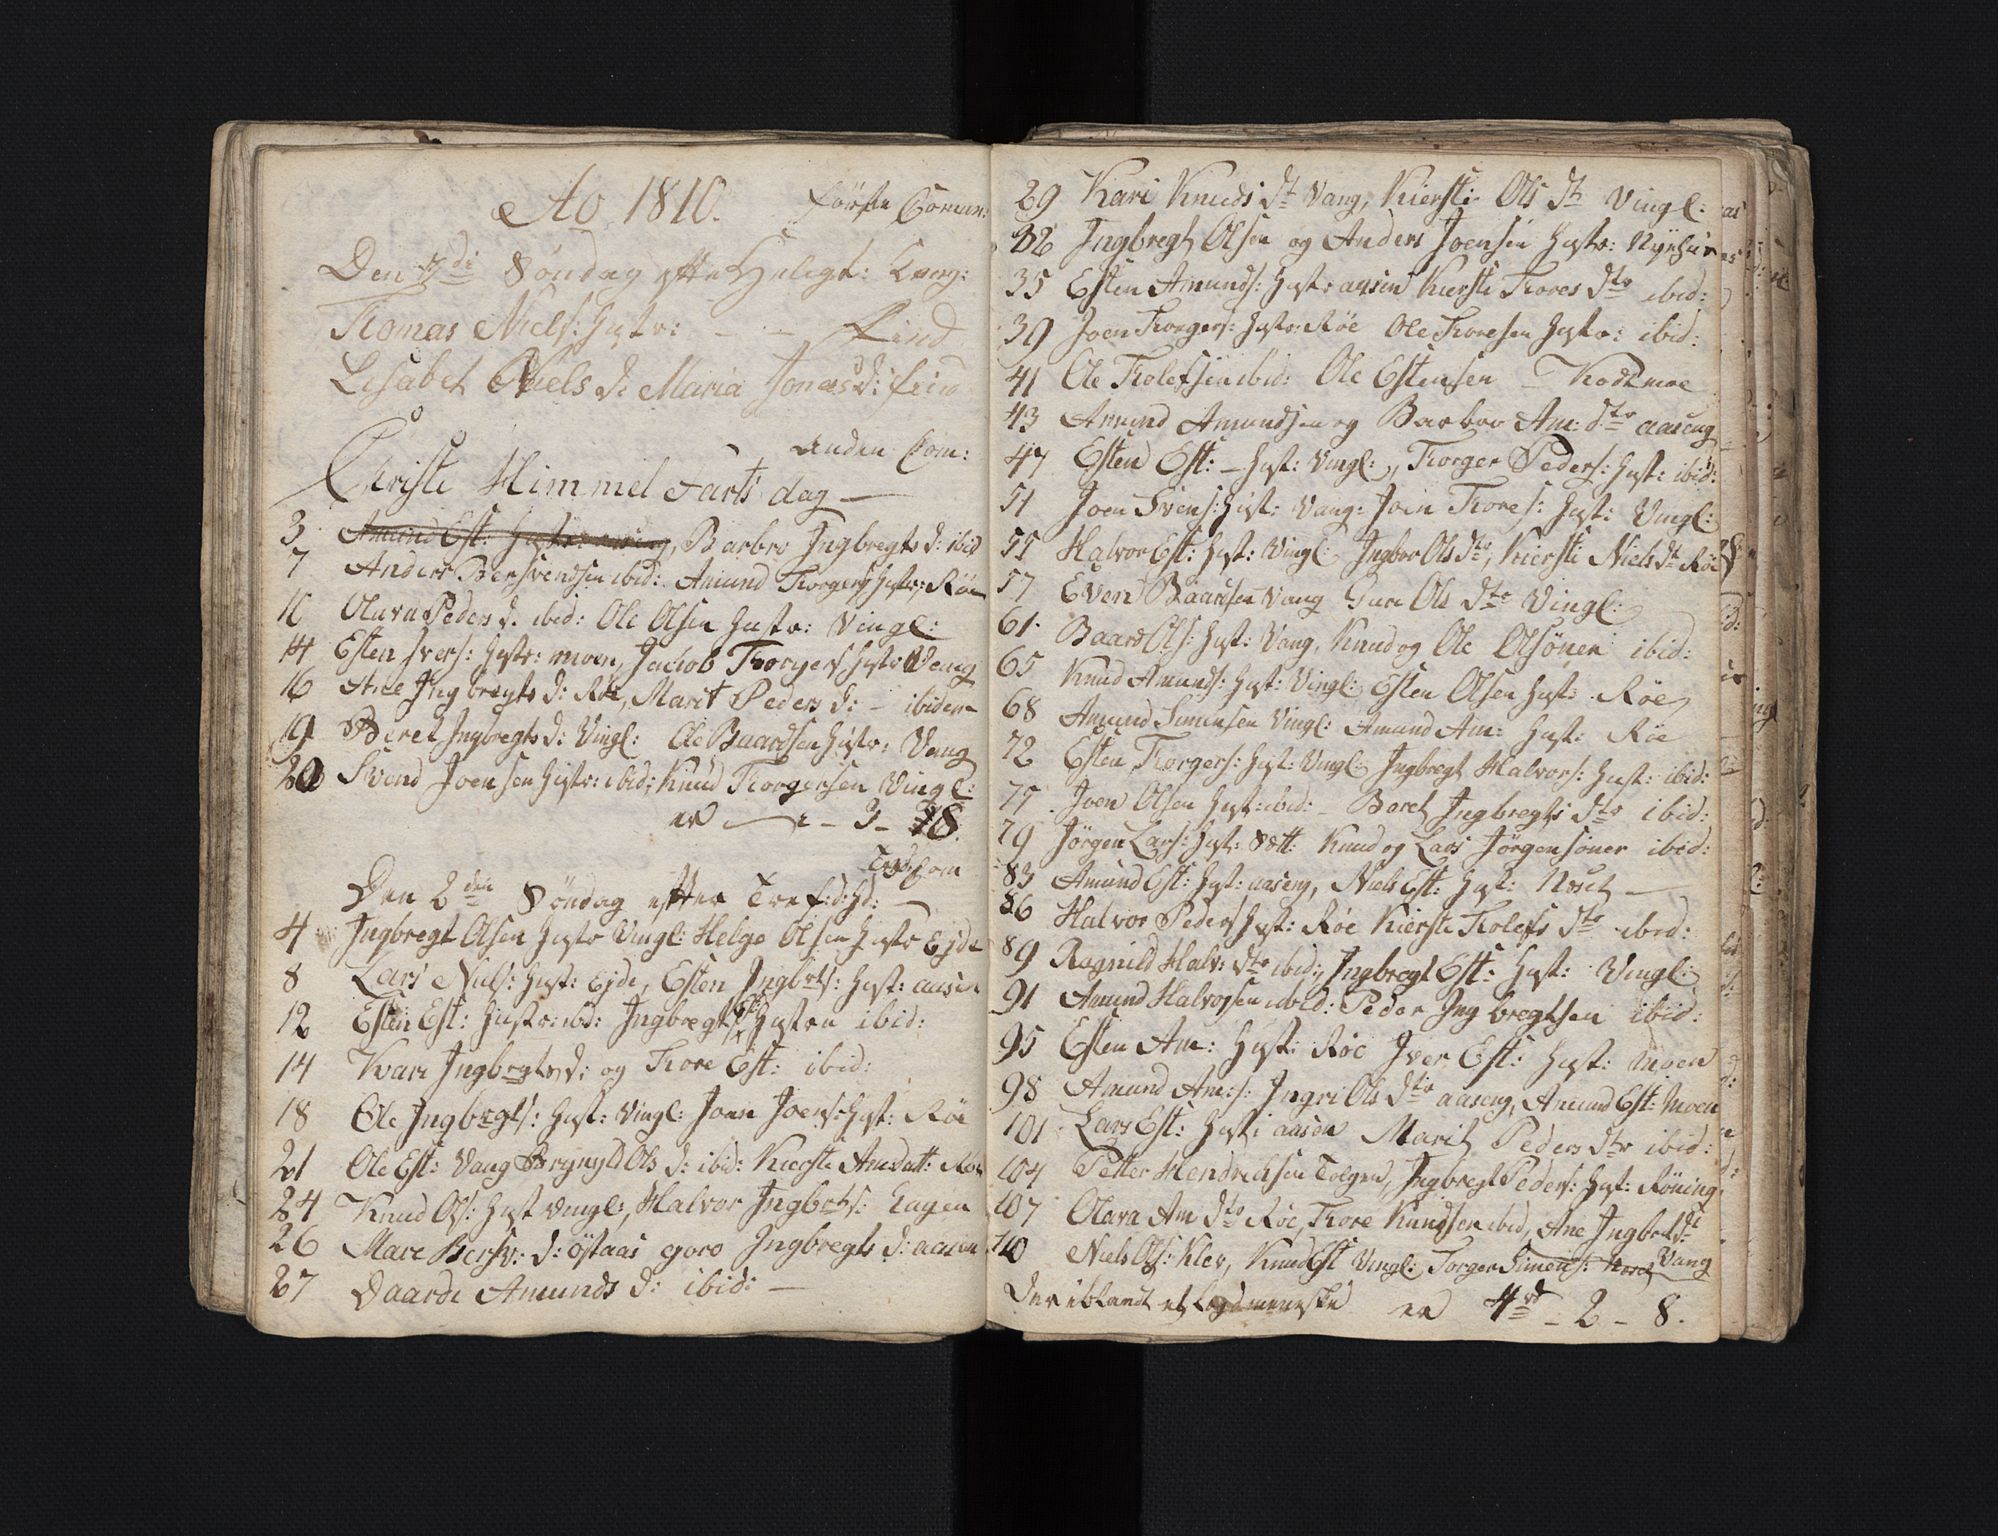 Ao 1810.
Förste Comun:
Den 7di Söndag efter Heligt: Kong:
Tomas Niels: Hustr: - - Find
Lisabet Niels d: Maria Jonas d: find
anden Com:
Christi Himmel Farts dag —
3 Amund Est: Hustr: aaseng, Barbro Ingbregts d: ibid
7 Anders Bersvendsen ibid: Amund Torgers Hustr: Röe
10 Olava Peders d. ibid: Ole Olsen Hustr: Vingl:
14 Esten Ivers: Hustr: moen, Jacob Torgers Hustr Vang
16 Ane Ingbregts d: Röe, Marit Peders d: - ibidem
19 Beret Ingbregts d: Vingl: Ole Baardsen Hustr: Vang
20 Svend Joensen Hustr: ibid: Knud Torgersen Vingl:
er — 2 - 3 - 18.
Com
Den 2den Söndag effter Tref: d: hd: —
4 Ingbregt Olsen Hustr Vingl: Helge Olsen Hustr Ejde
8 Lars Niels: Hust: Ejde, Esten Ingbrts: Hust: aasen
12 Esten Est: Hustr: ibd: Ingbregt Est: Hustru ibid:
14 Kari Ingbrgts d: og Tore Est: ibid:
18 Ole Ingbrgts: Hust: Vingl: Joen Joens: Hust: Röe
21 Ole Est: Vang Brynyld Ols d: ibid: Kierste Amdatt: Röe
24 Knud Ols: Hust Vingl:, Halvor Ingbrts: Hagen
26 Mare Bersv: d: östaas goro Ingbregts d: aasen
27 Daarde Amunds d: ibid: —
29 Kari Knuds dt Vang, Kiersti Ols dtr Vingl:
32 Ingbregt Olsen og Anders Joensen Hustr: Nyhus
35 Esten Amunds: Hust: aasen Kiersti Tores dtr ibid:
39 Joen Torgers: Hustr: Röe Ole Toresen Hustr: ibid:
41 Ole Tolefsen ibid: Ole Estensen - Kodtmoe
43 Amund Amundsen og Barbro Am: dtr aaseng
47 Esten Est: - Hust: Vingl:, Torger Peders: Hust: ibid:
51 Joen Svens: Hust: Vang: Join Tores: Hust: Vingl:
55 Halvor Est: Hust: Vingl: Ingbor Ols dtr, Kiersti Niels dt Röe
57 Even Baardsen Vang Guri Ols dtr Vingl:
61. Baard Ols: Hust: Vang, Knud og Ole Olsöner ibid:
65 Knud Amunds: Hust: Vingl: Esten Olsen Hust: Röe
68 Amund Simensen Vingl: Amund Am: Hust: Röe
72 Esten Torgers: Hust: Vingl: Ingbregt Halvors: Hust: ibid:
77. Joen Olsen Hust: ibid: - Beret Ingbregts dtr ibid:
79 Jörgen Lars: Hust: Sætt: Knud og Lars Jörgensöner ibid:
83 Amund Est: Hust: aaseng, Niels Est: Hust: Næset —
86 Halvor Peders Hust: Röe Kierste Tolefs dtr ibid:
89 Ragnild Halv: dtr ibid:, Ingbregt Est: Hust: Vingl:
91 Amund Halvorsen ibid: Peder Ingbregtsen ibid:
95 Esten Am: Hust: Röe Iver Est: Hust: Moen
98 Amund Am: s: Ingri Ols dtr aaseng, Amund Est: Moen
101. Lars Est: Hust: aasen Marit Peders dtr ibid:
104 Petter Hendrichsen Tolgen, Ingbregt Peders: Hust: Röning
107 Olava Am dtr Röe, Tore Knudsen ibid, Ane Ingbret dt
110 Niels Ols: Klev, Knud Est Vingl: Torger Simens: Vang
Der iblandt et Lægdmenneske er 4rd - 2 - 8.